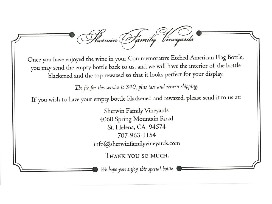 Sherwin Family Vineyards
Once you have enjoyed the wine in your Commemorative Etched American Flag Bottle,
you may send the empty bottle back to us, and we will have the interior of the bottle
blackened and the top rewaxed so that it looks perfect for your display.
The fee for this service is $20, plus tax and return shipping.
If you wish to have your empty bottle blackened and rewaxed, please send it to us at:
Sherwin Family Vineyards
4060 Spring Mountain Road
St. Helena, CA 94574
707-963-1154
info@sherwinfamilyvineyards.com
THANK YOU SO MUCH.
We hope you enjoy this special bottle